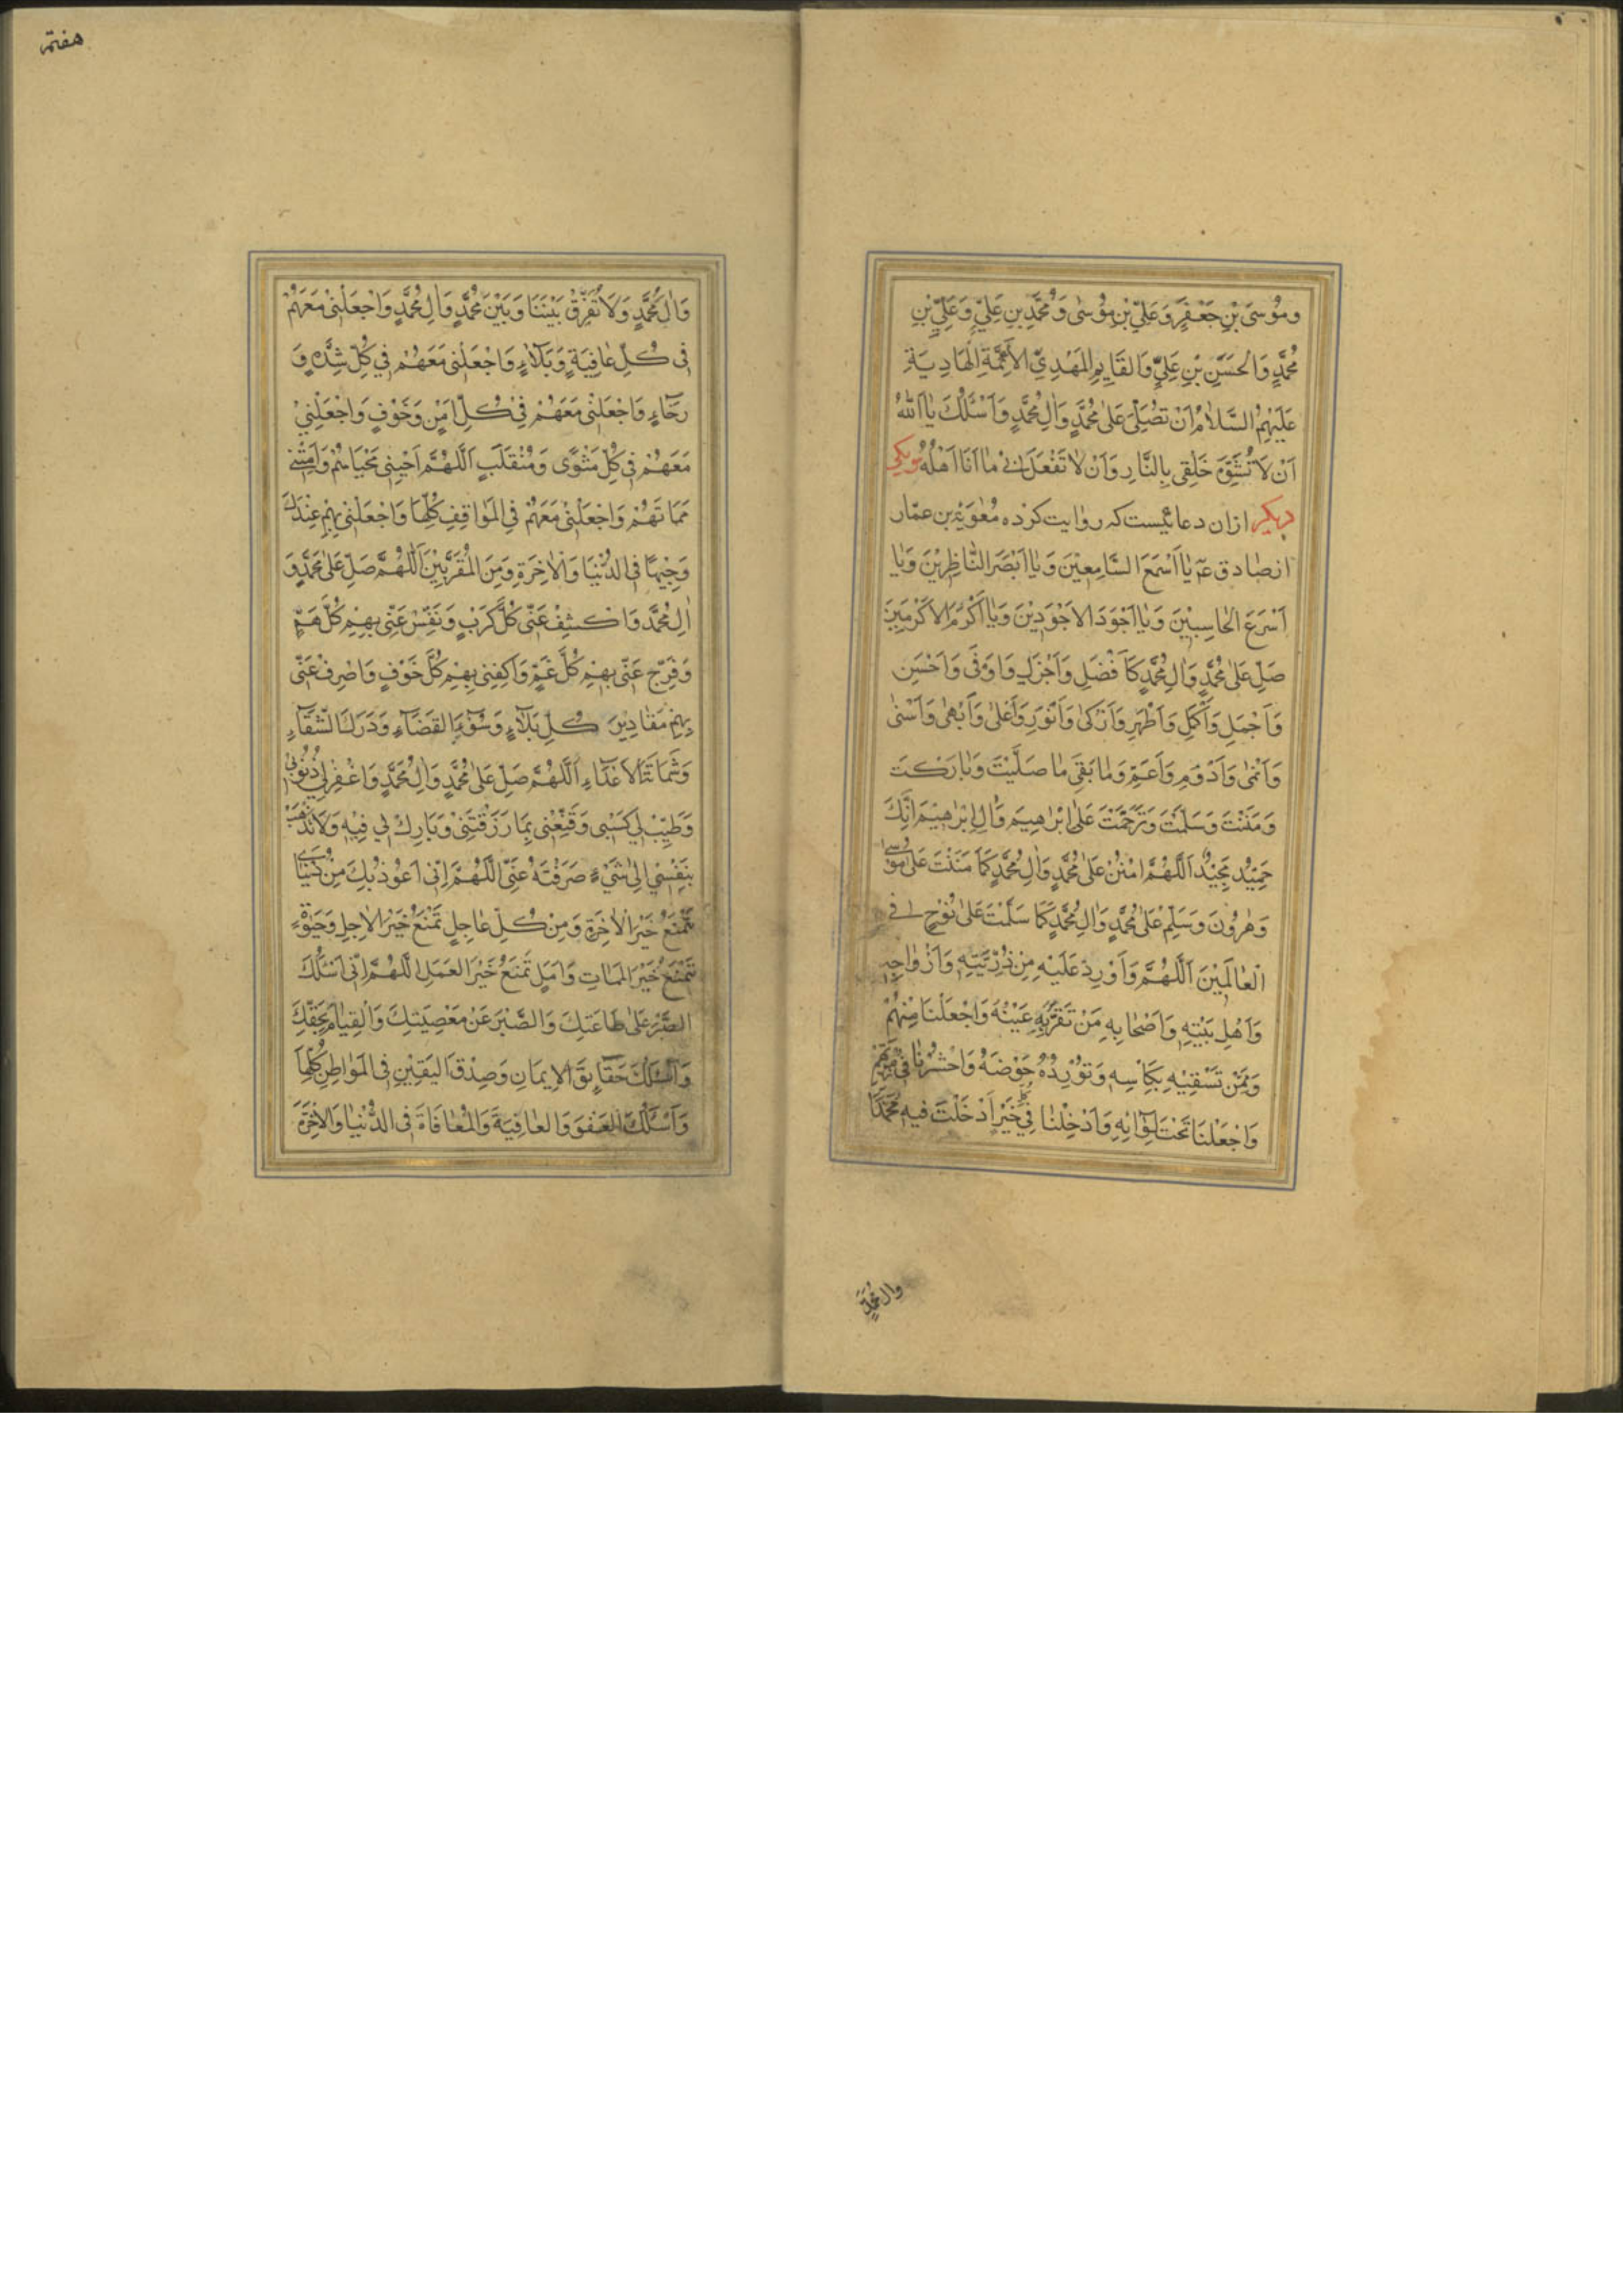 وَمُوسَى بْنِ جَعْفَرٍ وَعَلِيِّ بْنِ مُوسٰى وَمُحَمَّدِ بْنِ عَلِيٍّ وَعَلِيِّ بْنِ
مُحَمَّدٍ وَالْحَسَنِ بْنِ عَلِيٍّ وَالقَايِمِ المَهْدِيِّ الأَئِمَّةِ الْهَادِيَةِ
عَلَيْهِمُ السَّلَامُ اَنْ تُصَلِّىَ عَلىٰ مُحَمَّدٍ وَاٰلِ مُحَمَّدٍ وَاَسْئَلُكَ يٰا اَللّٰهُ
اَنْ لَا تُشَوِّهَ خَلْقِى بِالنَّارِ وَاَنْ لٰا تَفْعَلَ بِى مٰا اَنَا اَهْلُهُ و يكى
ديكر ازان دعائيست كه روايت كرده مُعٰوِيَة بن عمّار
از صٰادق عۤ يٰا اَسْمَعَ السَّامِعِيْنَ وَيٰا اَبْصَرَ النّٰاظِرِيْنَ وَيٰا
اَسْرَعَ الْحٰاسِبِيْنَ وَيٰا اَجْوَدَ الاَجْوَدِيْنَ وَيٰا اَكْرَمَ الاَكْرَمِيْنَ
صَلِّ عَلىٰ مُحَمَّدٍ وَاٰلِ مُحَمَّدٍ كَاَفْضَلِ وَاَجْزَلِ وَاَوْفىٰ وَاَحْسَنِ
وَاَجْمَلِ وَاَكْمَلِ وَاَطْهَرِ وَاَزْكىٰ وَاَنْوَرِ وَاَعْلىٰ وَاَبْهىٰ وَاَسْنىٰ
وَاَنْمىٰ وَاَدْوَمِ وَاَعَمِّ وَمٰا بَقِىَ مٰا صَلَّيْتَ وَبٰارَكْتَ
وَمَنَنْتَ وَسَلَّمْتَ وَتَرَحَّمْتَ عَلىٰ اِبْرٰاهِيمَ وَاٰلِ اِبْرٰاهِيْمَ اِنَّكَ
حَمِيْدٌ مَجِيْدٌ اَللّٰهُمَّ امْنُنْ عَلىٰ مُحَمَّدٍ وَاٰلِ مُحَمَّدٍ كَمَا مَنَنْتَ عَلىٰ مُوسىٰ
وَهٰرُونَ وَسَلِّمْ عَلىٰ مُحَمَّدٍ وَاٰلِ مُحَمَّدٍ كَمَا سَلَّمْتَ عَلىٰ نُوْحٍ فى
الْعٰالَمِيْنَ اَللّٰهُمَّ وَاَوْرِدْ عَلَيْهِ مِنْ ذُرِّيَّتِهِ وَاَزْوٰاجِهِ
وَاَهْلِ بَيْتِهِ وَاَصْحٰابِهِ مَنْ تَقَرُّ بِهِ عَيْنُهُ وَاجْعَلْنَا مِنْهُمْ
وَمِمَّنْ تَسْقِيْهِ بِكَاْسِهِ وَتُوْرِدُهُ حَوْضَهُ وَاحْشُرْنٰا فىٰ زُمْرَتِهِ
وَاجْعَلْنَا تَحْتَ لِوٰائِهِ وَاَدْخِلْنٰا فِي كُلِّ خَيْرٍ اَدْخَلْتَ فِيهِ مُحَمَّدًا
وال محمّدٍ
هفتم
وَاٰلَ مُحَمَّدٍ وَلَا تُفَرِّقْ بَيْنَنَا وَبَيْنَ مُحَمَّدٍ وَاٰلِ مُحَمَّدٍ وَاجْعَلْنِىْ مَعَهُمْ
فِى كُلِّ عٰافِيَةٍ وَبَلَاۤءٍ وَاجْعَلْنِى مَعَهُمْ فِي كُلِّ شِدَّةٍ وَ
رَخَاۤءٍ وَاجْعَلْنِى مَعَهُمْ فِىْ كُلِّ اَمْنٍ وَخَوْفٍ وَاجْعَلْنِيْ
مَعَهُمْ فِى كُلِّ مَثْوًى وَمُنْقَلَبٍ اَللّٰهُمَّ اَحْيِنِى مَحْيَاهُمْ وَاَمِتْنِى
مَمَاتَهُمْ وَاجْعَلْنِى مَعَهُمْ فِي الْمَوٰاقِفِ كُلِّهَا وَاجْعَلْنِى بِهِمْ عِنْدَكَ
وَجِيْهًا فِى الدُّنْيَا وَالْاٰخِرَةِ وَمِنَ الْمُقَرَّبِيْنَ اَللّٰهُمَّ صَلِّ عَلىٰ مُحَمَّدٍ وَ
اٰلِ مُحَمَّدٍ وَاكْشِفْ عَنِّى كُلَّ كَرْبٍ وَنَفِّسْ عَنِّى بِهِمْ كُلَّ هَمٍّ
وَفَرِّجْ عَنِّى بِهِمْ كُلَّ غَمٍّ وَاكْفِنِى بِهِمْ كُلَّ خَوْفٍ وَاصْرِفْ عَنِّى
بِهِمْ مَقٰادِيْرَ كُلِّ بَلَاۤءٍ وَسُوْۤءَ القَضَاۤءِ وَدَرَكَ الشَّقَاۤءِ
وَشَمَاتَةَ الاَعْدَاۤءِ اَللّٰهُمَّ صَلِّ عَلىٰ مُحَمَّدٍ وَاٰلِ مُحَمَّدٍ وَاغْفِرْ لِيْ ذُنُوْبِى
وَطَيِّبْ لِي كَسْبِى وَقَنِّعْنِى بِمَا رَزَقْتَنِىْ وَبَارِكْ لِي فِيْهِ وَلَا تَذْهَبْ
بِنَفْسِيْ اِلىٰ شَيْءٍ صَرَفْتَهُ عَنِّى اَللّٰهُمَّ اِنِّى اَعُوْذُ بِكَ مِنْ دُنْيَا
تَمْنَعُ خَيْرَ الْاٰخِرَةِ وَمِنْ كُلِّ عٰاجِلٍ تَمْنَعُ خَيْرَ الْاٰجِلِ وَحَيٰوةٍ
تَمْنَعُ خَيْرَ المَمَاتِ وَاَمَلٍ تَمْنَعُ خَيْرَ العَمَلِ اللّٰهُمَّ اِنِّى اَسْئَلُكَ
الصَّبْرَ عَلىٰ طَاعَتِكَ وَالصَّبْرَ عَنْ مَعْصِيَتِكَ وَالْقِيٰامَ بِحَقِّكَ
وَاَسْئَلُكَ حَقَاۤئِقَ الاِيمَانِ وَصِدْقَ اليَقِيْنِ فِى الْمَوٰاطِنِ كُلِّهٰا
وَاَسْئَلُكَ العَفْوَ وَالعٰافِيَةَ وَالْمُعٰافَاةَ فِى الدُّنْيٰا وَالاٰخِرَةِ